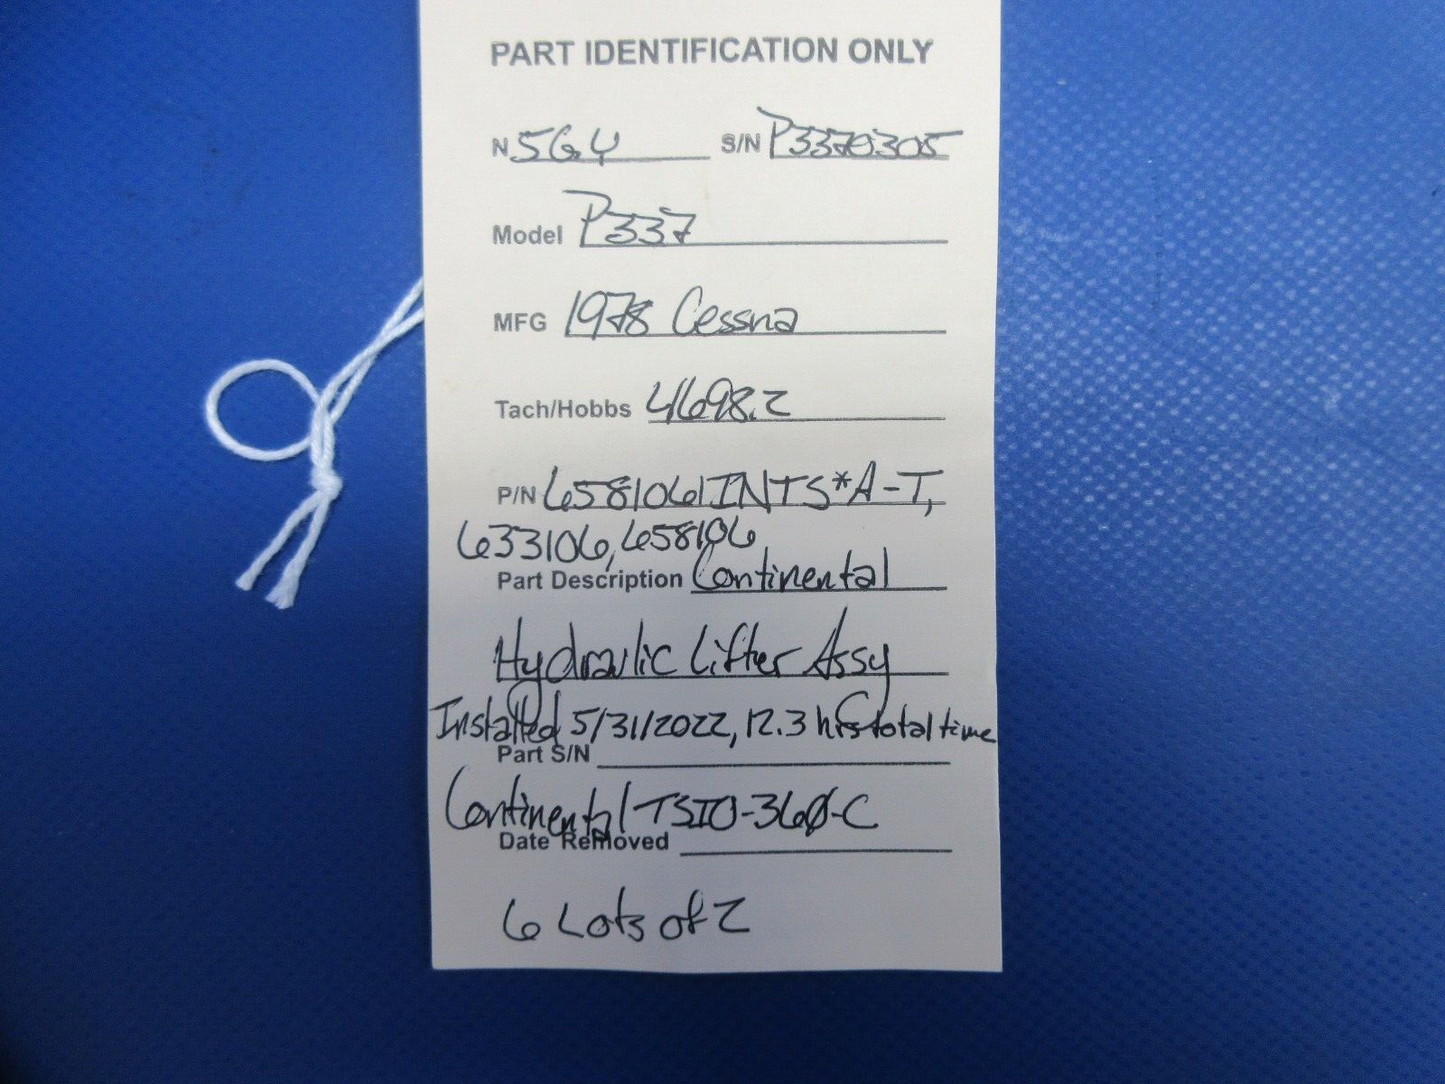 PART IDENTIFICATION ONLY
N 5GY S/N P3370305
Model P337
MFG 1978 Cessna
Tach/Hobbs 4698.2
P/N 658106INTS*A-T,
633106, 658106
Part Description Continental
Hydraulic Lifter Assy
Installed 5/31/2022, 12.3 hrs total time
Part S/N
Continental TSIO-360-C
Date Removed
6 Lots of 2